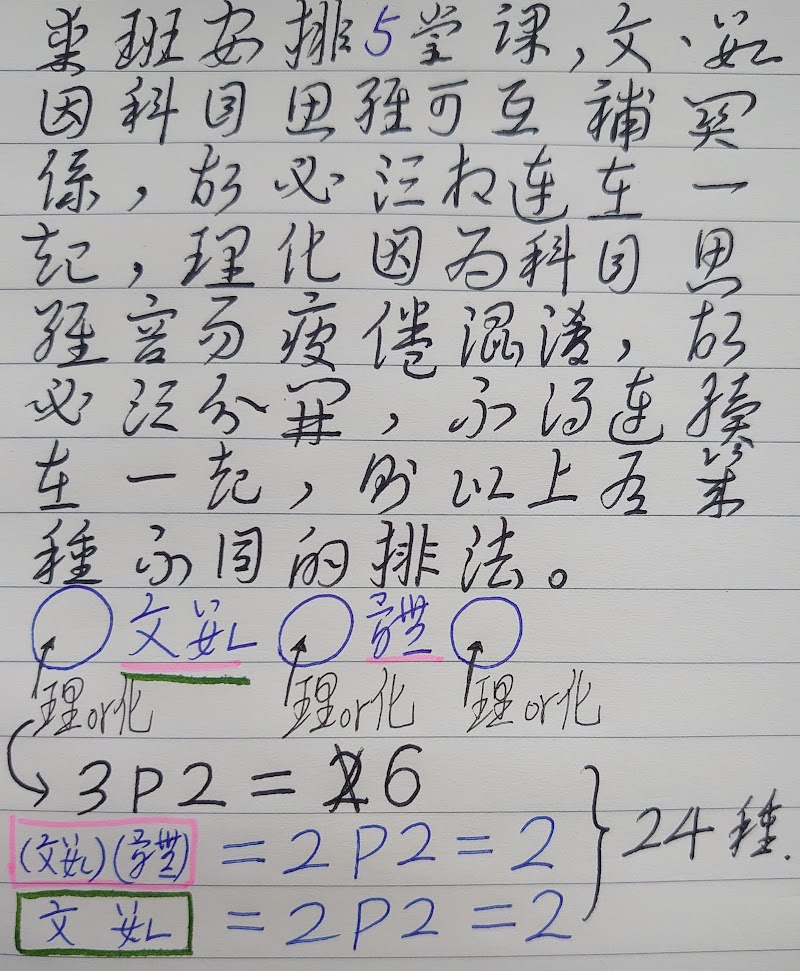 某班安排5堂課,文、數
因科目思維可互補關
係，故必須相連在一
起，理化因為科目思
維容易疲倦混淆，故
必須分開，不得連續
在一起，則以上有幾
種不同的排法。
文數 體
理or化 理or化 理or化
3P2=6
(文數)(體) =2P2=2
文 數 =2P2=2
24種.